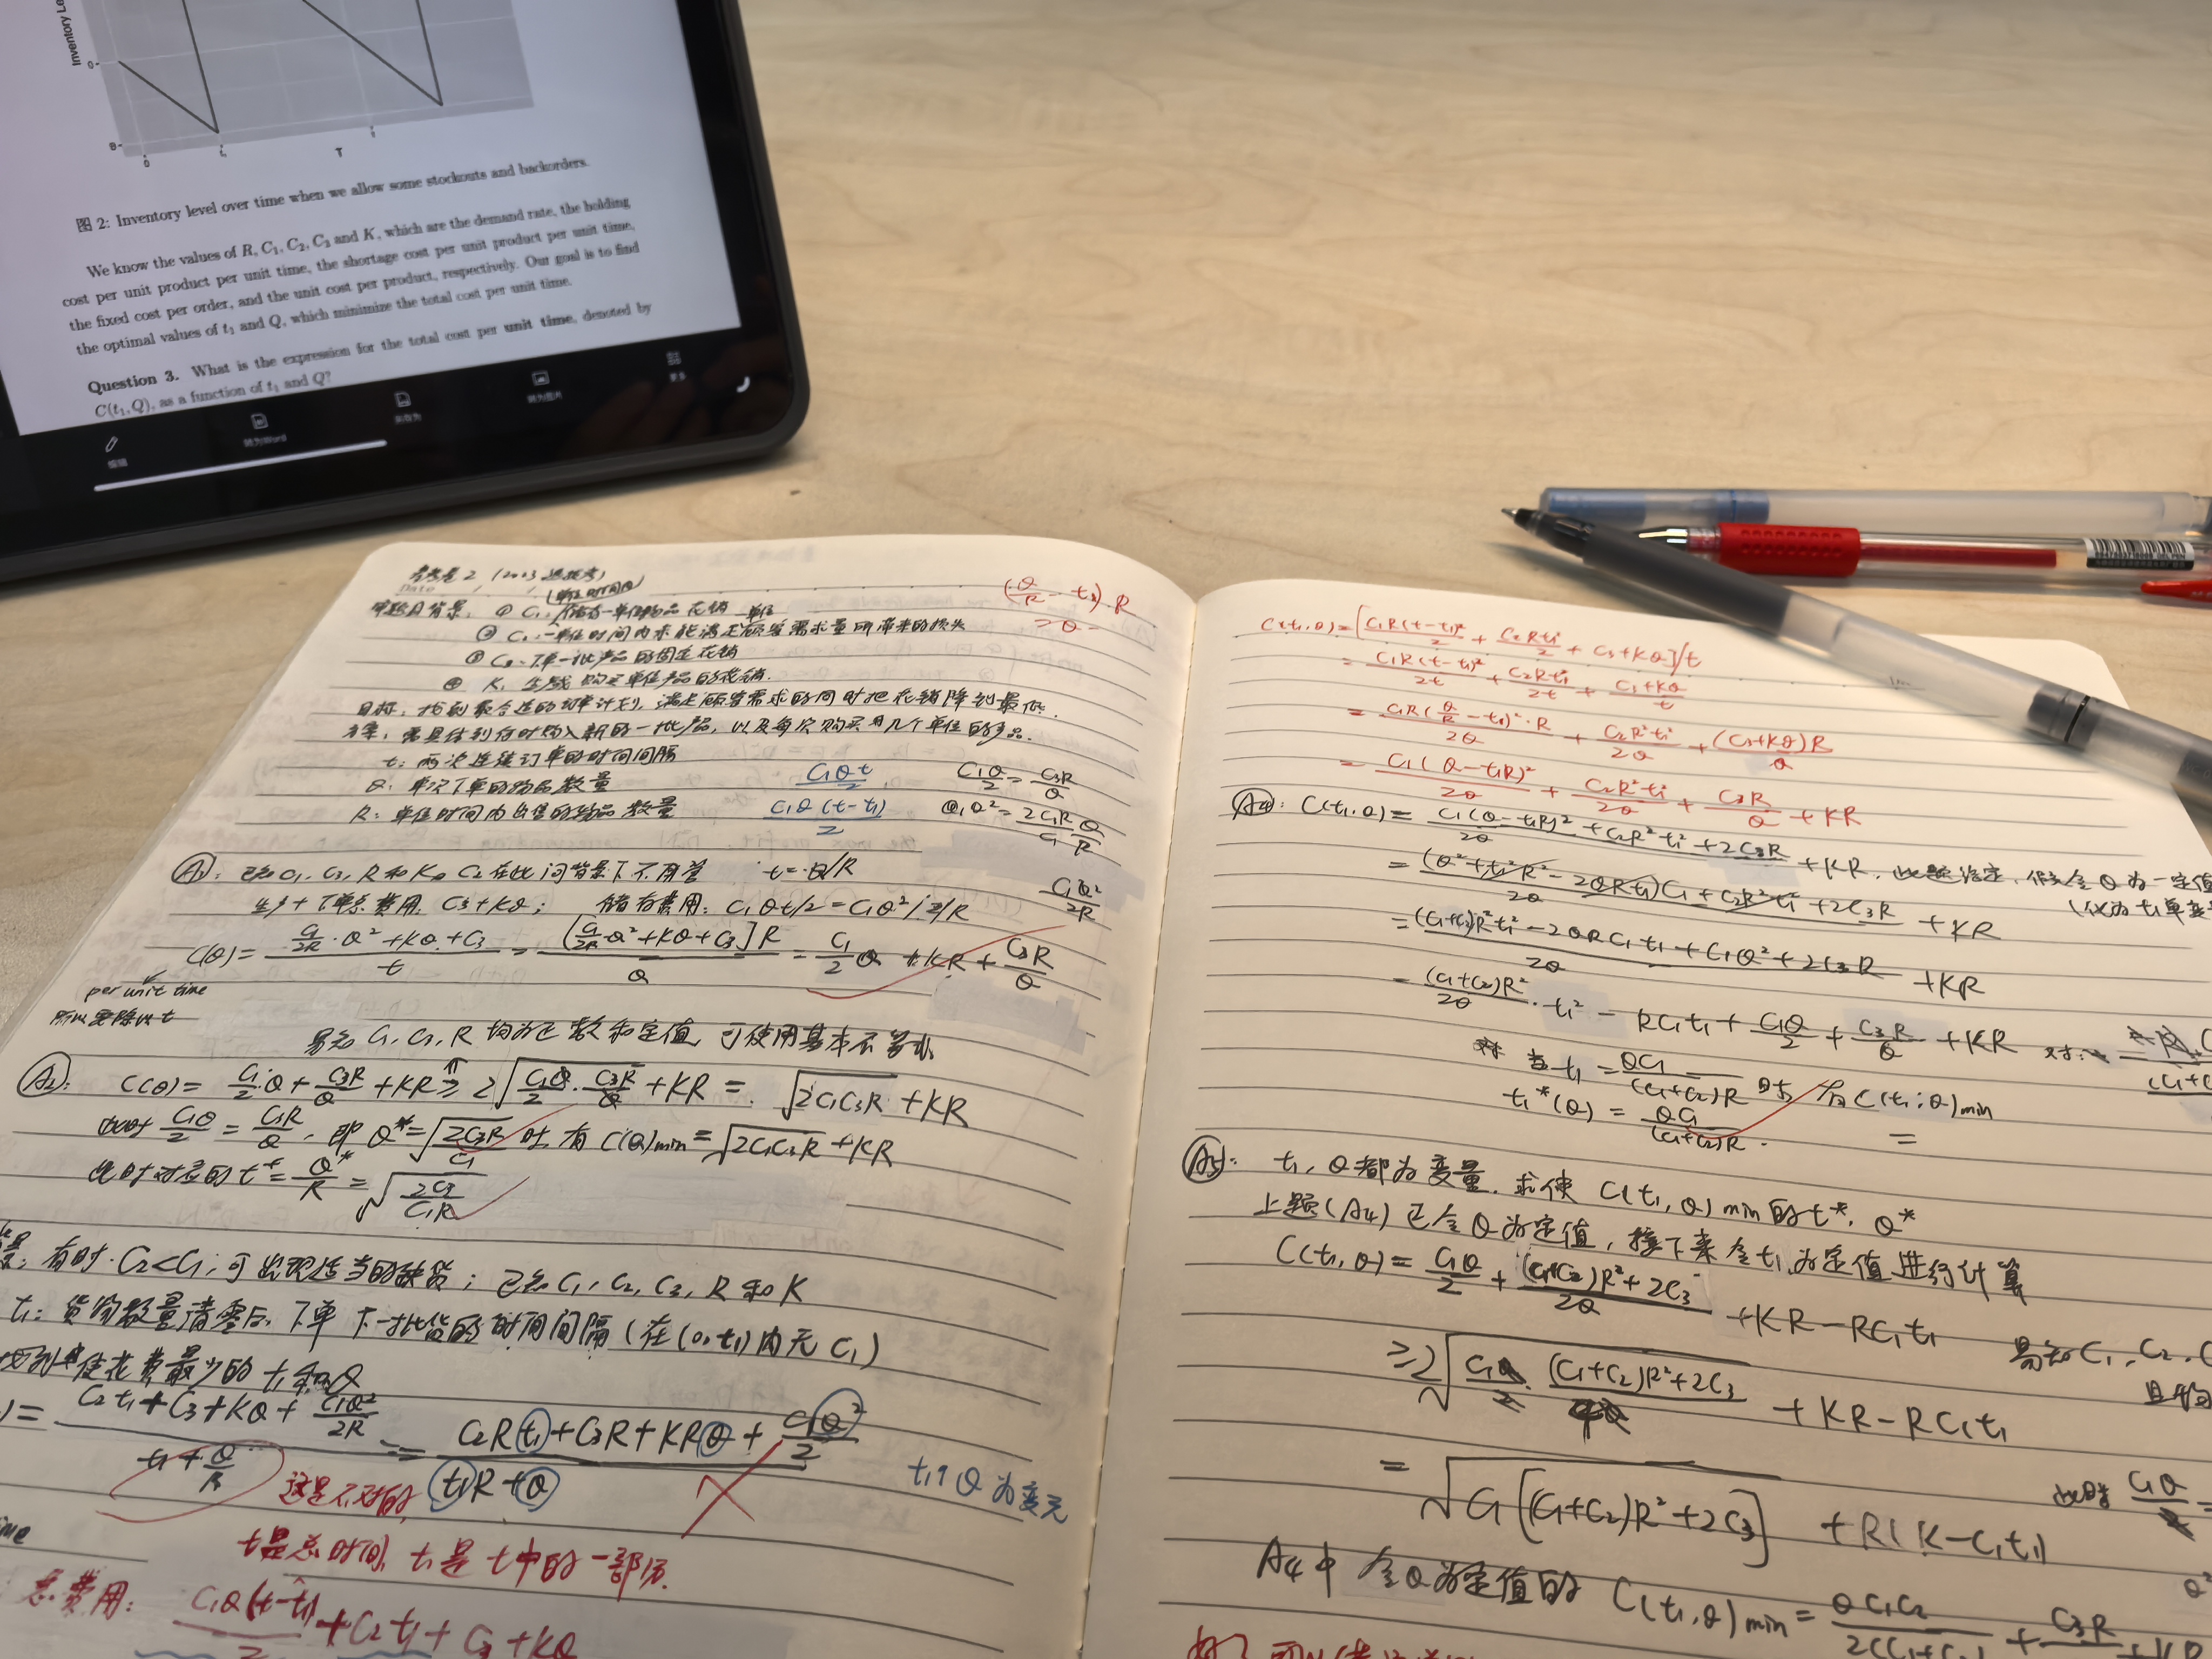 Inventory Le
0
B
0
t₁
T
t
图 2: Inventory level over time when we allow some stockouts and backorders.
We know the values of R, C₁, C₂, C₃ and K, which are the demand rate, the holding
cost per unit product per unit time, the shortage cost per unit product per unit time,
the fixed cost per order, and the unit cost per product, respectively. Our goal is to find
the optimal values of t₁ and Q, which minimize the total cost per unit time.
Question 3. What is the expression for the total cost per unit time, denoted by
C(t₁, Q), as a function of t₁ and Q?
编辑
转为Word
另存为
转为图片
更多
Date
(单位时间内)
背景: ① C₁: 储存一单位物品花销
② C₂: 一单位时间内未能满足顾客需求量所带来的损失
单位
③ C₃: 下单一批产品的固定花销
④ K: 生产或购买单位产品的花销.
目标: 找到最合适的订单计划, 满足顾客需求的同时把花销降到最低.
方案: 需具体到何时购入新的一批产品, 以及每次购买几个单位的产品.
t: 两次连续订单的时间间隔
Q: 单次下单的物品数量
R: 单位时间内出售的物品数量
(Q/R - t₁)·R
= Q -
C₁Qt/2
C₁Q(t-t₁)/2
C₁Q/2 = C₃R/Q
C₁Q² = 2C₃R
C₁Q²/2R
A1: 已知C₁, C₃, R和K, C₂在此问背景下不用管 t = Q/R
生产+下单总费用 C₃+KQ; 储存费用: C₁Qt/2 = C₁Q²/2/R
C(Q) = (C₁/2R·Q²+KQ+C₃)/t = [C₁/2R·Q²+KQ+C₃]R/Q = C₁/2 Q + KR + C₃R/Q
per unit time
所以要除以t
易知C₁, C₃, R均为正数和定值, 可使用基本不等式
A2: C(Q) = C₁/2·Q + C₃R/Q + KR ≥ 2√(C₁Q/2·C₃R/Q) + KR = √(2C₁C₃R) + KR
此时 C₁Q/2 = C₃R/Q, 即 Q* = √(2C₃R/C₁) 时, 有 C(Q)min = √(2C₁C₃R) + KR
此时对应的 t* = Q*/R = √(2C₃/C₁R)
有时 C₂<C₁, 可出现适当的缺货; 已知C₁, C₂, C₃, R和K
t₁: 货物数量清零后, 下单下一批货的时间间隔 (在(0, t₁)内无C₁)
找到使花费最少的 t₁和Q
) = (C₂t₁+C₃+KQ+C₁Q²/2R)/(t₁+Q/R) = (C₂Rt₁+C₃R+KRQ+C₁Q²/2)/(t₁R+Q)
t₁, Q为变元
这是不对的,
t是总时间, t₁是t中的一部分.
总费用: C₁Q(t-t₁)/2 + C₂t₁ + C₃ + KQ
C(t₁, Q) = [C₁R(t-t₁)²/2 + C₂Rt₁²/2 + C₃+KQ]/t
= C₁R(t-t₁)²/2t + C₂Rt₁²/2t + (C₃+KQ)/t
= C₁R(Q/R-t₁)²·R/2Q + C₂R²t₁²/2Q + (C₃+KQ)R/Q
= C₁(Q-t₁R)²/2Q + C₂R²t₁²/2Q + C₃R/Q + KR
A4: C(t₁, Q) = (C₁(Q-t₁R)²+C₂R²t₁²+2C₃R)/2Q + KR, 假令Q为一定值
(仅为t₁单变
= ((Q²+t₁²R²-2QRt₁)C₁+C₂R²t₁²+2C₃R)/2Q + KR
= ((C₁+C₂)R²t₁²-2QRC₁t₁+C₁Q²+2C₃R)/2Q + KR
= (C₁+C₂)R²/2Q·t₁² - RC₁t₁ + C₁Q/2 + C₃R/Q + KR
当 t₁ = QC₁/(C₁+C₂)R 时, 有 C(t₁, Q)min
t₁*(Q) = QC₁/(C₁+C₂)R.
=
A5: t₁, Q都为变量, 求使 C(t₁, Q)min的t*, Q*
上题(A4)已令Q为定值, 接下来令t₁为定值进行计算
C(t₁, Q) = C₁Q/2 + ((C₁+C₂)R²+2C₃)/2Q + KR - RC₁t₁
易知C₁, C₂,
≥ 2√(C₁/2·(C₁+C₂)R²+2C₃) + KR - RC₁t₁
= √(C₁[(C₁+C₂)R²+2C₃]) + R(K-C₁t₁)
此时 C₁Q
A4中令Q为定值的 C(t₁, Q)min = QC₁C₂/2(C₁+C₂) + C₃R + KR